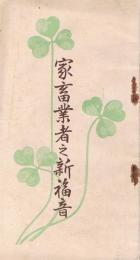 家畜業者之新福音